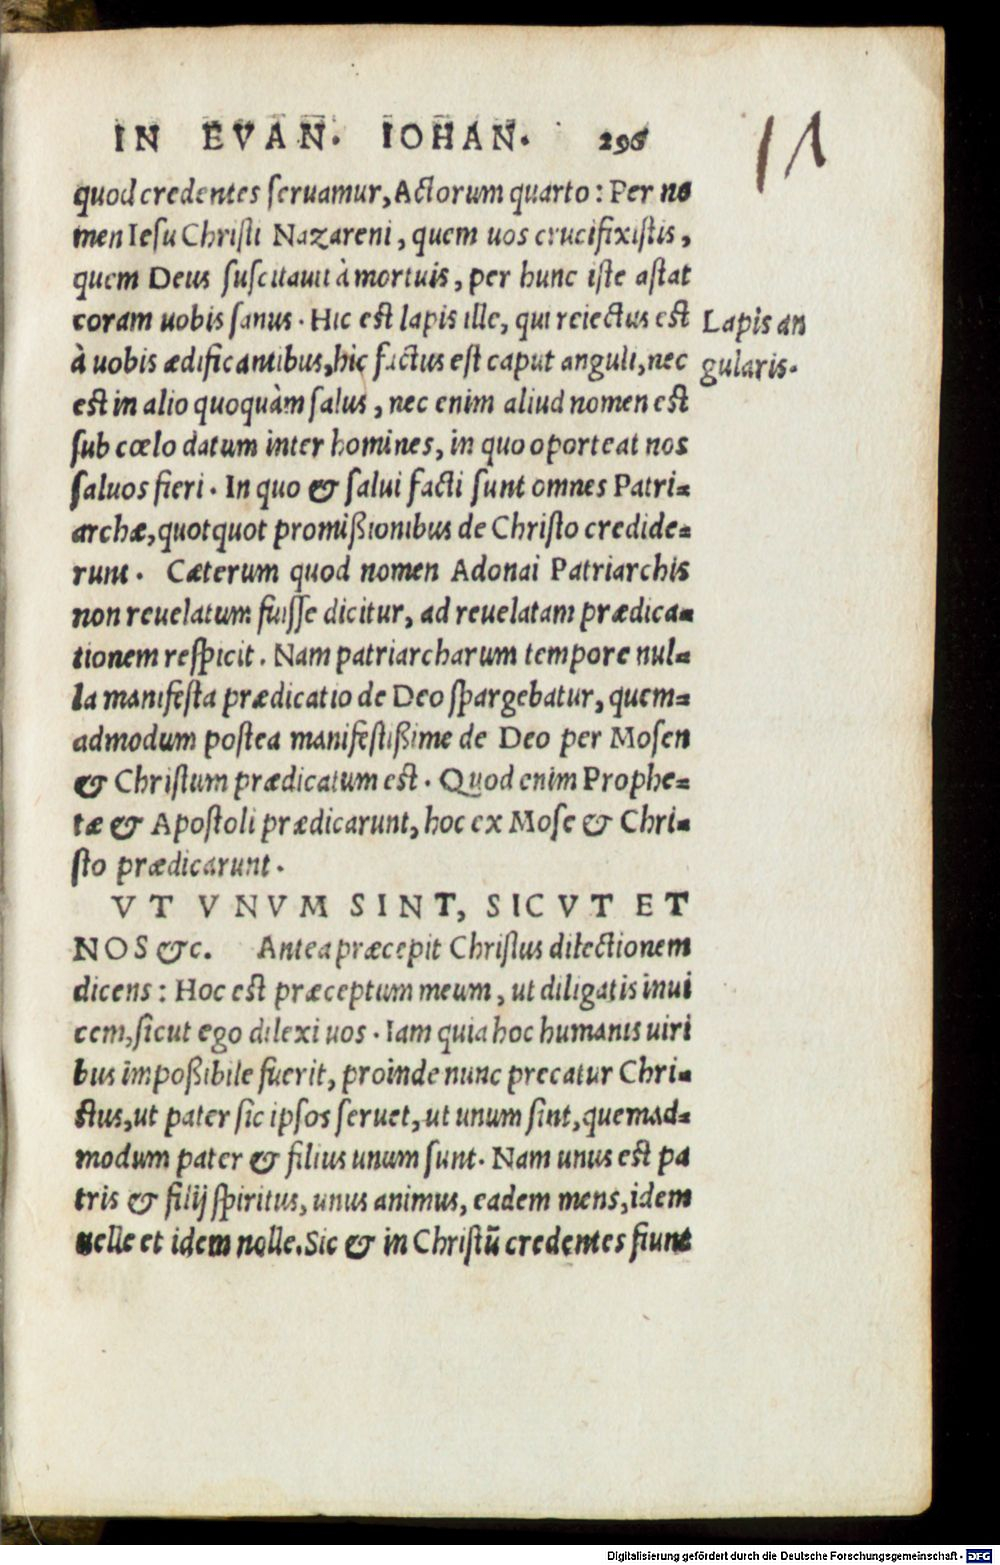 IN EVAN. IOHAN. 296
11
quod credentes seruamur, Actorum quarto: Per no
men Iesu Christi Nazareni, quem uos crucifixistis,
quem Deus suscitauit à mortuis, per hunc iste astat
coram uobis sanus. Hic est lapis ille, qui reiectus est
Lapis an
à uobis ædificantibus, hic factus est caput anguli, nec
gularis.
est in alio quoquàm salus, nec enim aliud nomen est
sub cœlo datum inter homines, in quo oporteat nos
saluos fieri. In quo & salui facti sunt omnes Patri=
archæ, quotquot promißionibus de Christo credide=
runt. Cæterum quod nomen Adonai Patriarchis
non reuelatum fuisse dicitur, ad reuelatam prædica=
tionem respicit. Nam patriarcharum tempore nul=
la manifesta prædicatio de Deo spargebatur, quem=
admodum postea manifestißime de Deo per Mosen
& Christum prædicatum est. Quod enim Prophe=
tæ & Apostoli prædicarunt, hoc ex Mose & Chri=
sto prædicarunt.
VT VNVM SINT, SICVT ET
NOS &c. Antea præcepit Christus dilectionem
dicens: Hoc est præceptum meum, ut diligatis inui
cem, sicut ego dilexi uos. Iam quia hoc humanis uiri
bus impoßibile fuerit, proinde nunc precatur Chri=
stus, ut pater sic ipsos seruet, ut unum sint, quemad=
modum pater & filius unum sunt. Nam unus est pa
tris & filij spiritus, unus animus, eadem mens, idem
uelle et idem nolle. Sic & in Christū credentes fiunt
Digitalisierung gefördert durch die Deutsche Forschungsgemeinschaft - DFG